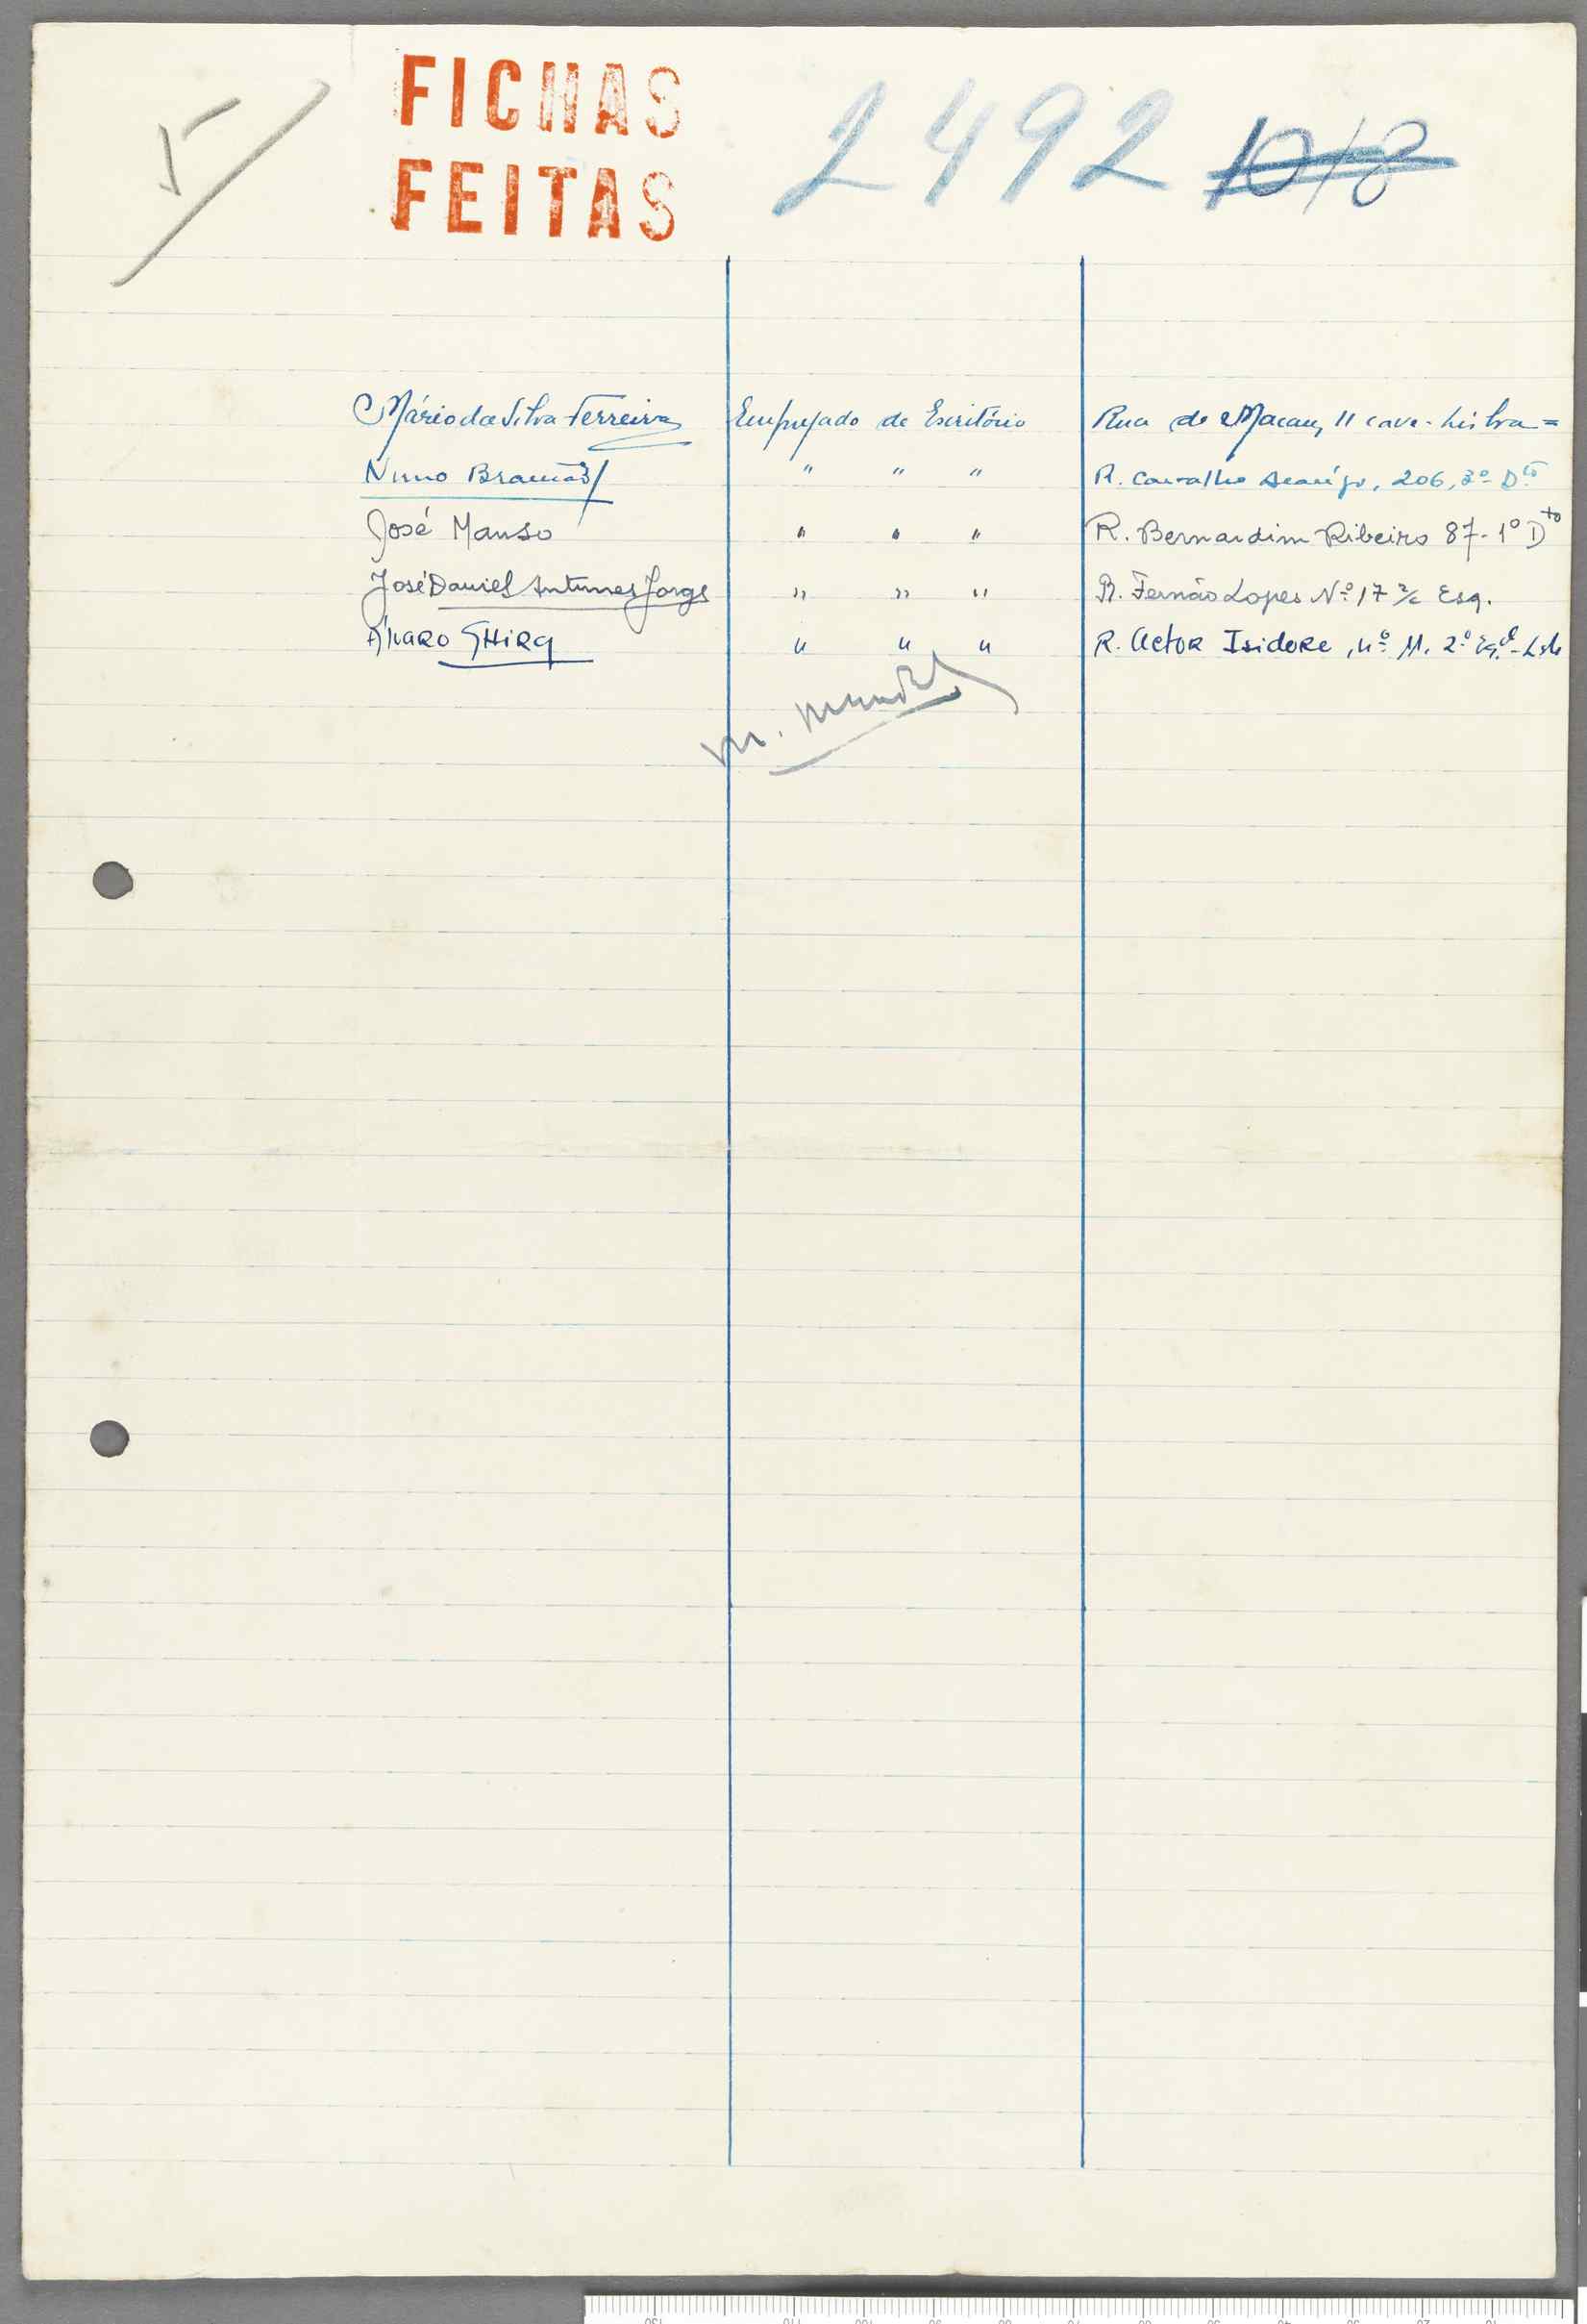 5
FICHAS
FEITAS
2492 1018
Mário da Silva Ferreira Empregado de Escritório Rua de Macau, 11 cave - Lisboa =
Nuno Bramão " " " R. Carvalho Araújo, 206, 3º Dto
José Manso " " " R. Bernardim Ribeiro 87-1º Dto
José Daniel Antunes Jorge " " " R. Fernão Lopes Nº 17 r/c Esq.
Álvaro " " " R. Actor Isidoro, nº 11. 2º Esq.
M.